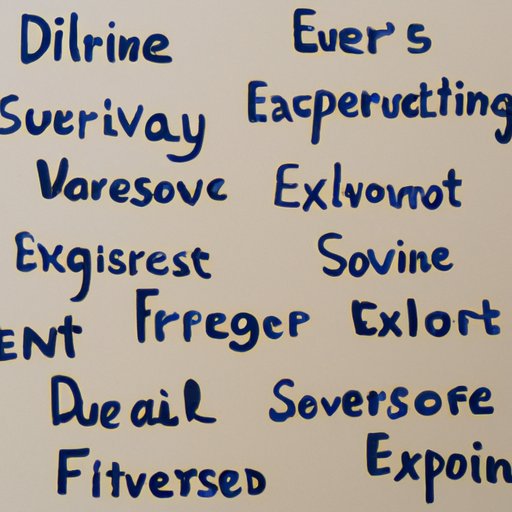 Dilrine
Euer's
Suerivay
Eacpeructting
Varesovc
Exlvomot
Exgisrest
Sovine
ENT
Frregcp
Exlort
Dueail
Soversofe
Fitversed
Expoin